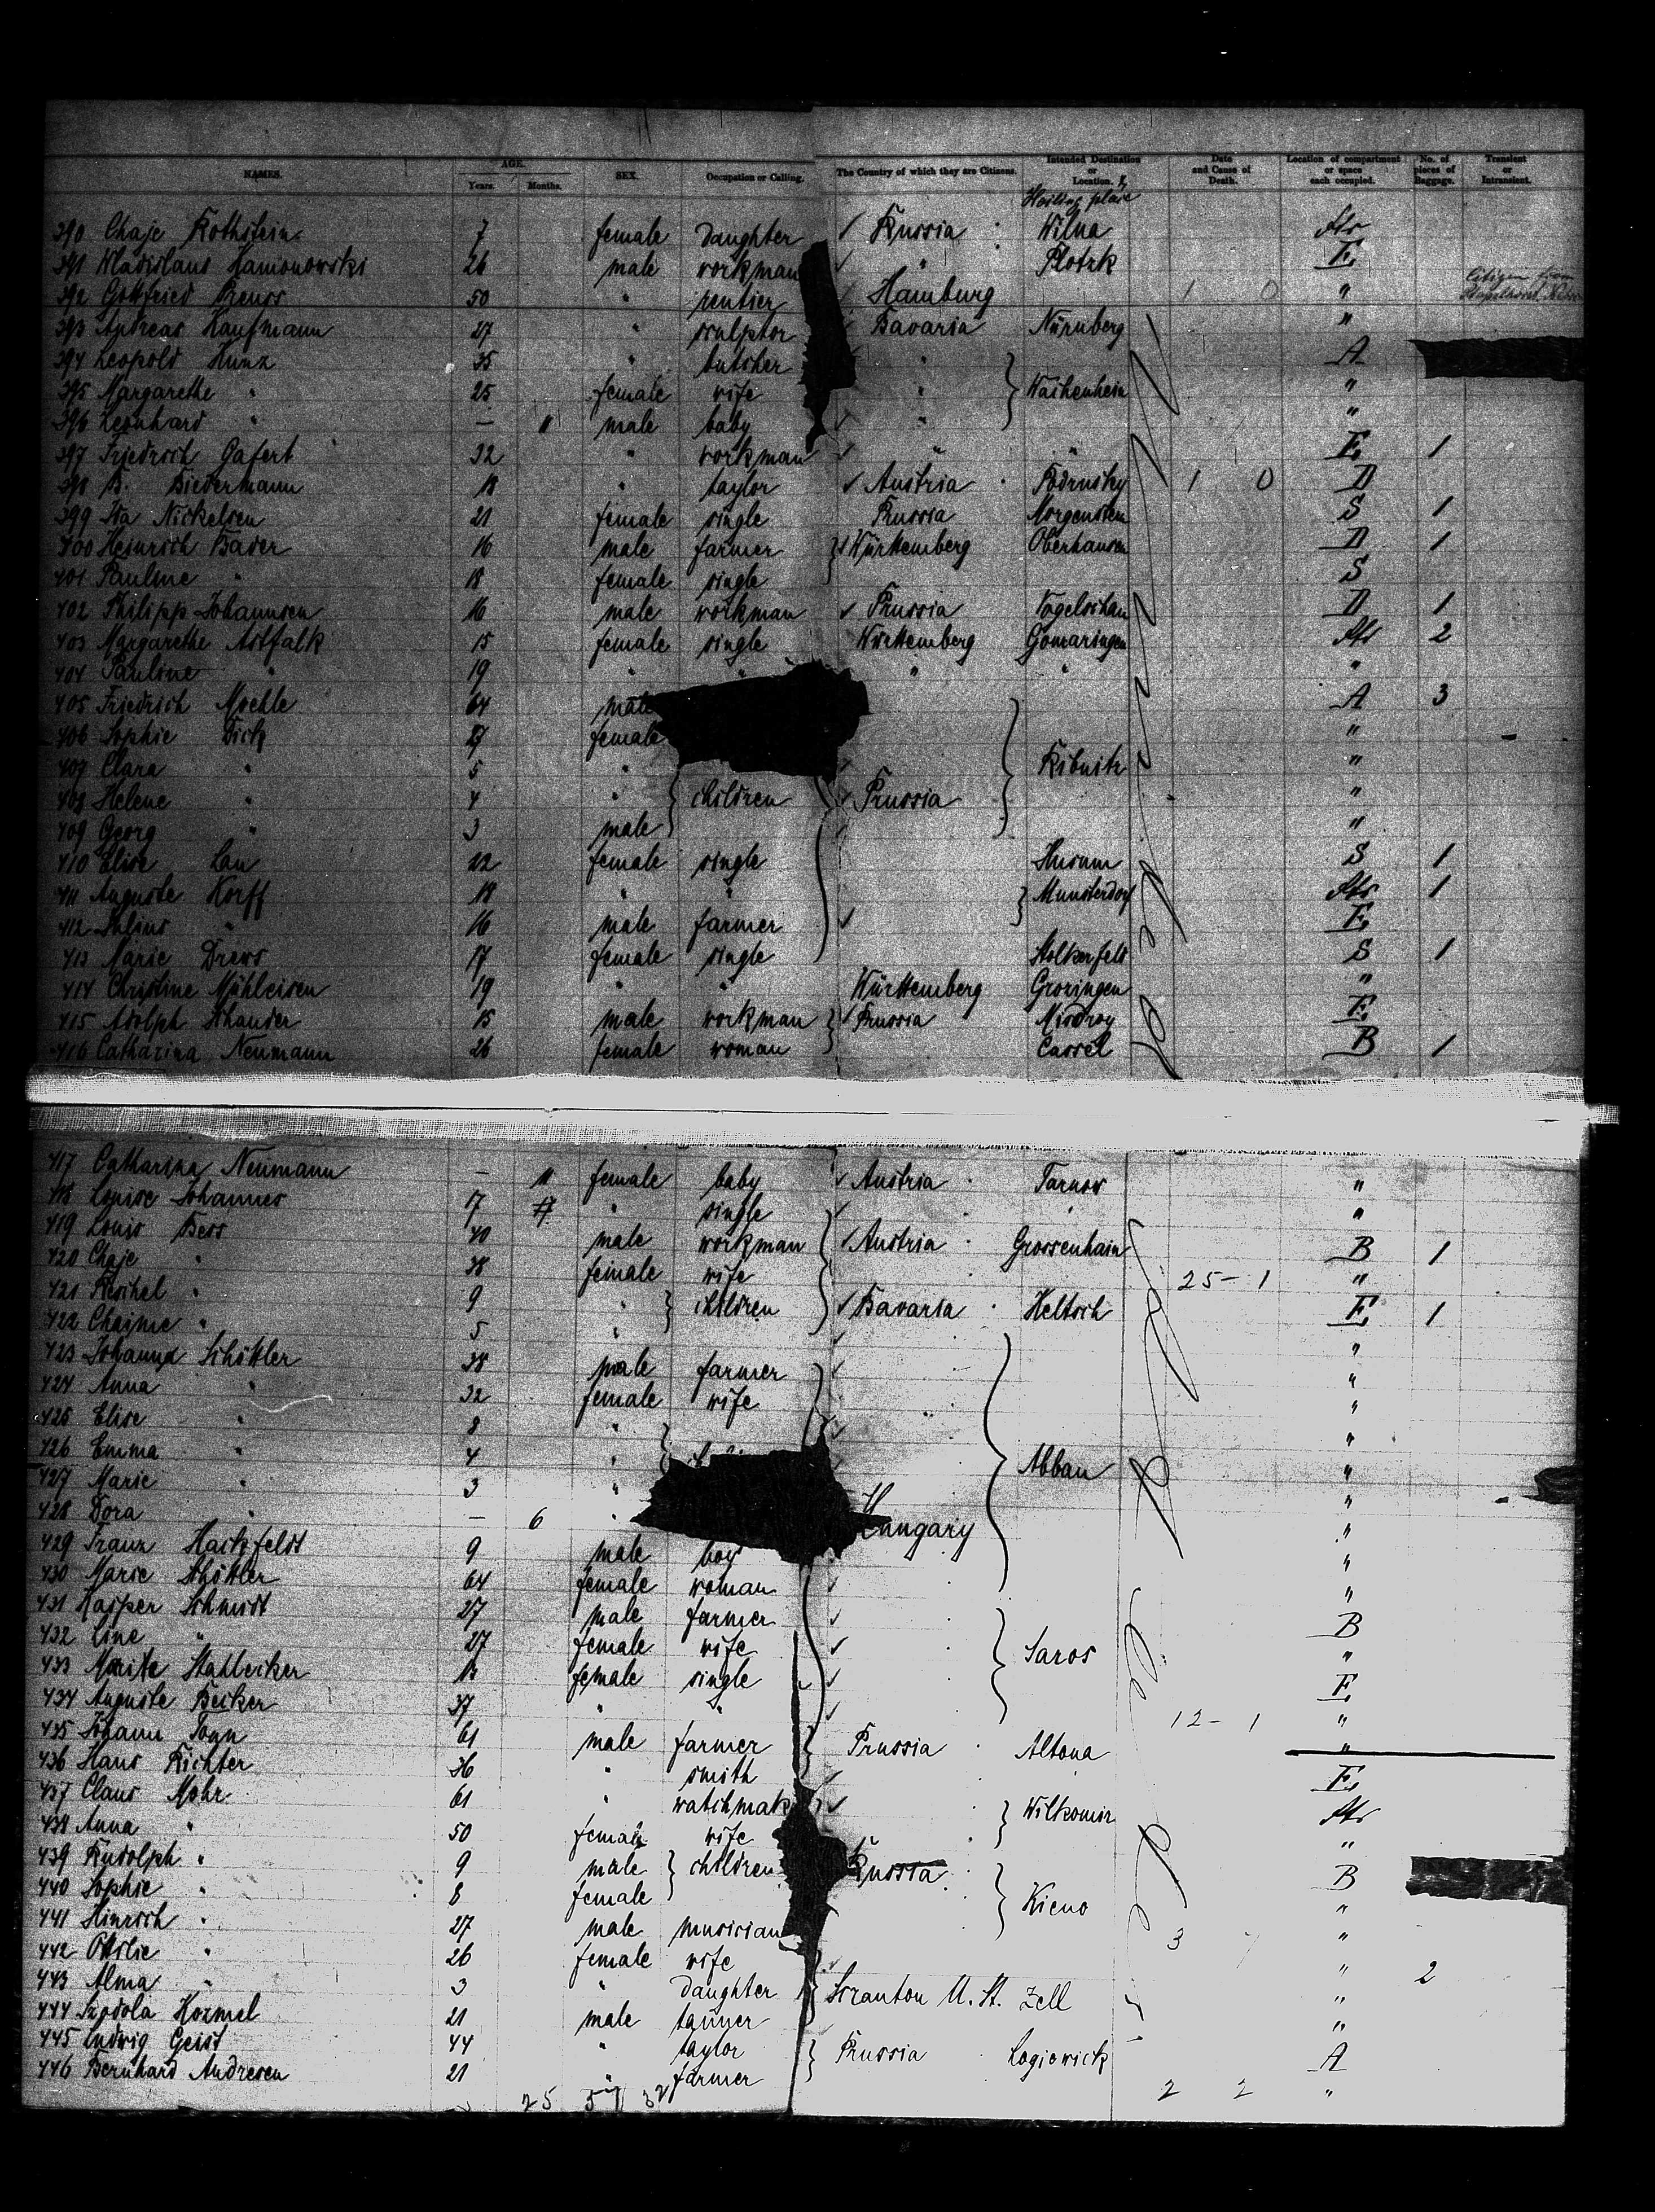 NAMES. AGE. Years. Months. SEX. Occupation or Calling. The Country of which they are Citizens. Intended Destination or Location. Date and Cause of Death. Location of compartment or space each occupied. No. of pieces of Baggage. Transient or Intransient.
Hailing place
390 Chaje Rothstein 7 female daughter Russia Wilna
391 Wladislaus Kamonowski 26 male workman " Plotzk E
392 Gottfried Preuss 50 " rentier Hamburg 1 0 " Citizen from
393 Andreas Kaufmann 27 " sculptor Bavaria Nürnberg "
394 Leopold Kunz 35 " butcher " A
395 Margarethe " 25 female wife " Wachenheim "
396 Leonhard " — 11 male baby " "
397 Friedrich Gafert 32 " workman " " E 1
398 B. Biedermann 18 " taylor Austria Podrusky 1 0 D
399 Ida Nickelsen 21 female single Prussia Morgenstern S 1
400 Heinrich Bader 16 male farmer Württemberg Oberhausen D 1
401 Pauline " 18 female single S
402 Philipp Johannsen 16 male workman Prussia D 1
403 Margarethe Astfalk 15 female single Württemberg Gomaringen 2
404 Pauline " 19 " " " " "
405 Friedrich Moehle 64 male A 3
406 Sophie Dick 27 female "
407 Clara " 5 " Ribnitz "
408 Helene " 4 " children Prussia "
409 Georg " 3 male "
410 Elise Lau 22 female single Husum S 1
411 Auguste Korff 18 " " Munsterdorf 1
412 Julius " 16 male farmer E
413 Marie Drews 17 female single S 1
414 Christine Mühleisen 19 " " Württemberg Groningen "
415 Adolph Schauder 15 male workman Prussia Misdroy E
416 Catharina Neumann 26 female woman Cassel B 1
417 Catharina Neumann — 11 female baby Austria Tarnow "
418 Louise Johannes 17 " single "
419 Louis Bess 40 male workman Austria Grossenhain B 1
420 Chaje " 38 female wife 25 – 1 "
421 Reschel " 9 " children Bavaria Heltsch E 1
422 Chajme " 5 " "
423 Johannes Schöttler 38 male farmer "
424 Anna " 32 female wife "
425 Elise " 8 " "
426 Emma " 4 " Abbau "
427 Marie " 3 " "
428 Dora " — 6 " Hungary "
429 Franz Hartzfeldt 9 male boy "
430 Marie Schöttler 64 female woman "
431 Kasper Schmidt 27 male farmer B
432 Line " 27 female wife Saros "
433 Stahlecker 18 female single E
434 Auguste Becker 37 " " 12 – 1 "
435 Johann 61 male farmer Prussia Altona "
436 Hans Richter 36 " smith E
437 Claus Mohr 61 " watchmak Wilkomir
438 Anna " 50 female wife "
439 Rudolph " 9 male children Russia B
440 Sophie " 8 female Kieno "
441 Hinrich " 27 male musician 3 "
442 Ottilie " 26 female wife " 2
443 Alma " 3 " daughter Scranton U. St. Zell "
444 Szodola Kozmel 21 male tanner "
445 Ludwig Geist 44 " taylor Prussia Logiewick A
446 Bernhard Andresen 21 " farmer 2 2 "
25